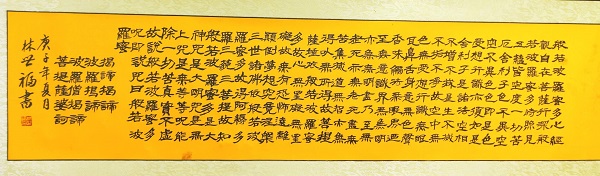 般若波羅蜜多心經
觀自在菩薩行深般
若波羅蜜多時照見
五蘊皆空度一切苦
厄舍利子色不異空
空不異色色即是空
空即是色受想行識
亦復如是舍利子是
諸法空相不生不滅
不垢不淨不增不減
是故空中無色無受
想行識無眼耳鼻舌
身意無色聲香味觸
法無眼界乃至無意
識界無無明
亦無無明盡乃至無
老死亦無老死盡無
苦集滅道無智亦無
得以無所得故菩提
薩埵依般若波羅蜜
多故心無罣礙無罣
礙故無有恐怖遠離
顛倒夢想究竟涅槃
三世諸佛依般若波
羅蜜多故得阿耨多
羅三藐三菩提故知
般若波羅蜜多是大
神咒是大明咒是無
上咒是無等等咒能
除一切苦真實不虛
故說般若波羅蜜多
咒即說咒曰般若波
羅蜜
揭諦揭諦
波羅揭諦
波羅僧揭諦
菩提薩婆訶
庚子年夏月
林世福書